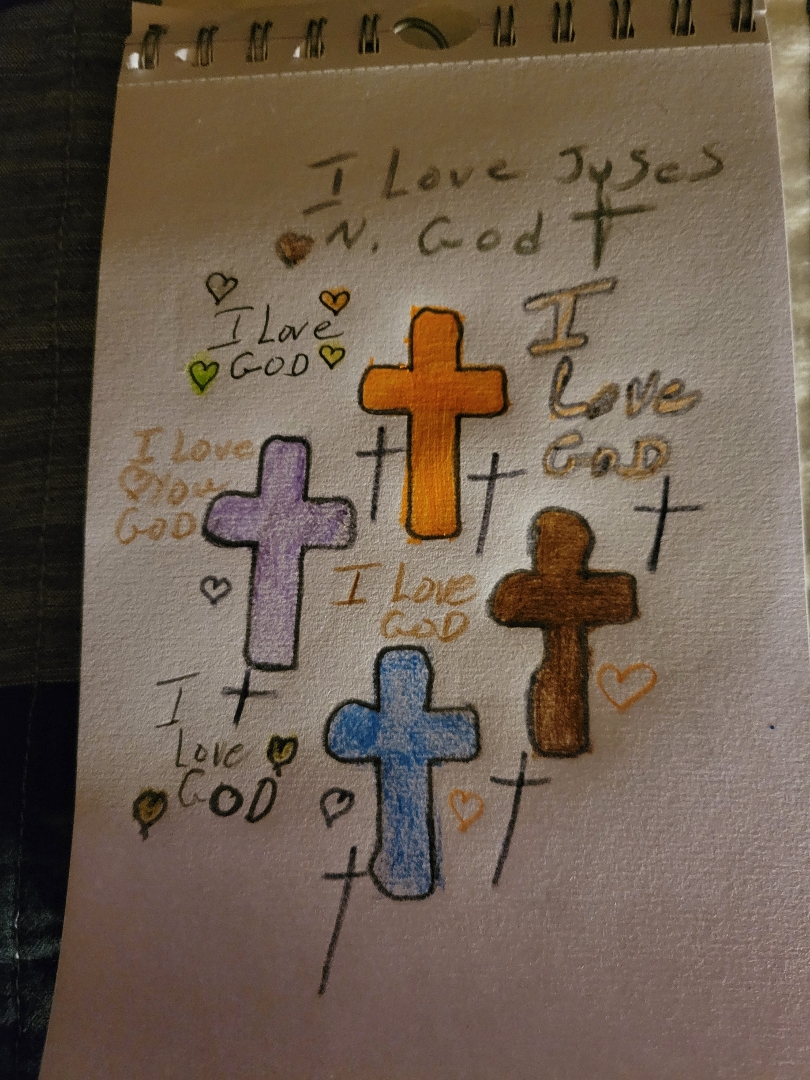 I Love Jyses
N. God
I Love
GOD
I
Love
GOD
I Love
You
GOD
I Love
GOD
I
Love
GOD